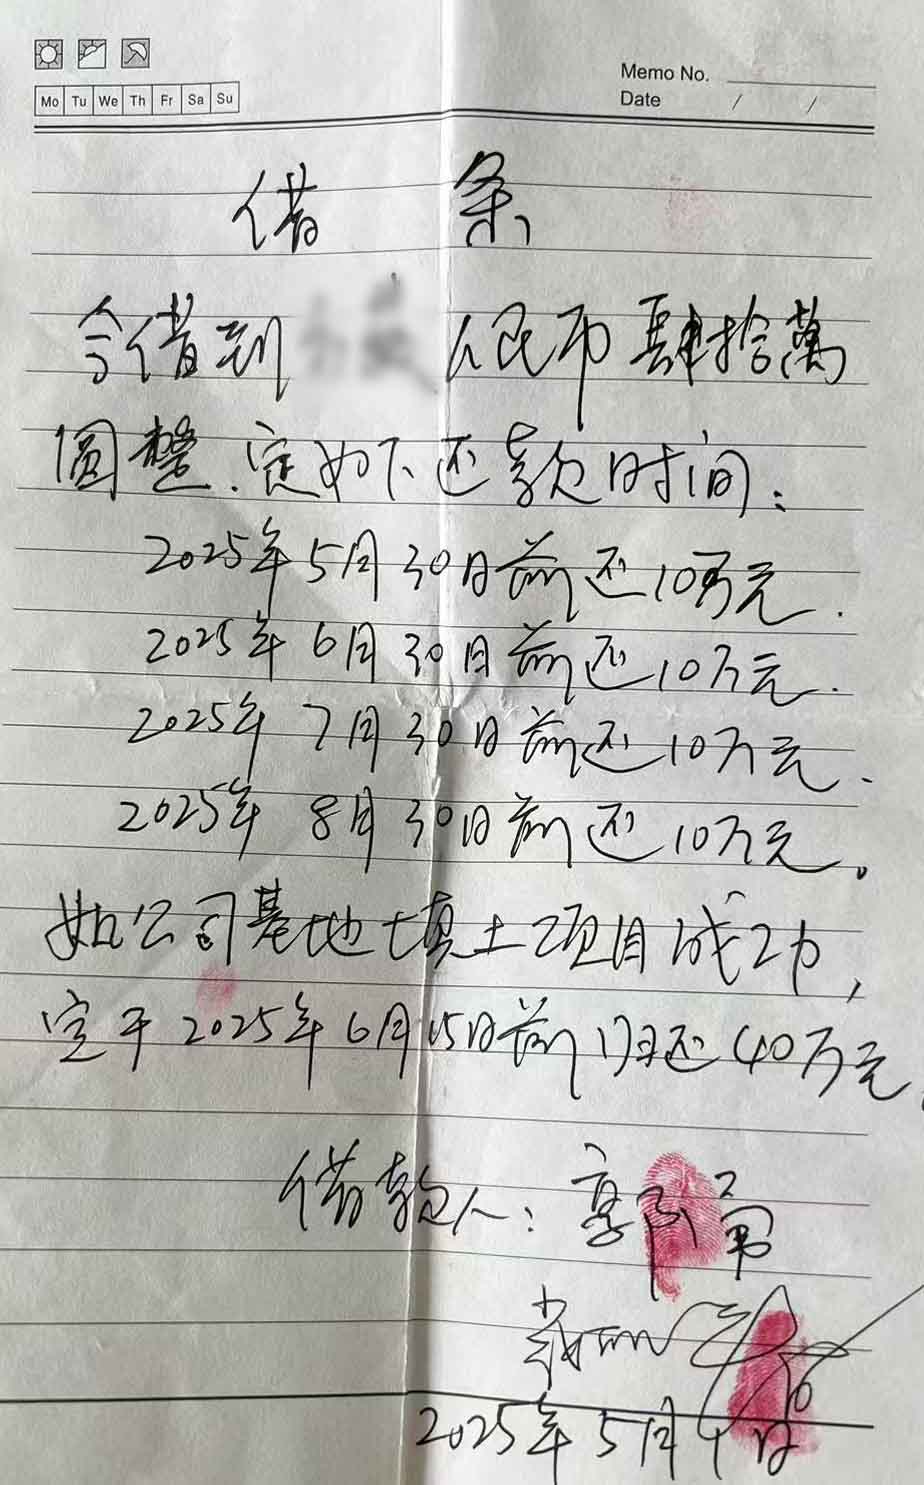 Mo Tu We Th Fr Sa Su
Memo No.
Date / /
借 条
今借到 人民币肆拾萬
圆整.定如下还款时间:
2025年5月30日前还10万元.
2025年6月30日前还10万元.
2025年7月30日前还10万元、
2025年8月30日前还10万元。
如公司基地填土项目成功,
定于2025年6月15日前归还40万元.
借款人:
2025年5月 日